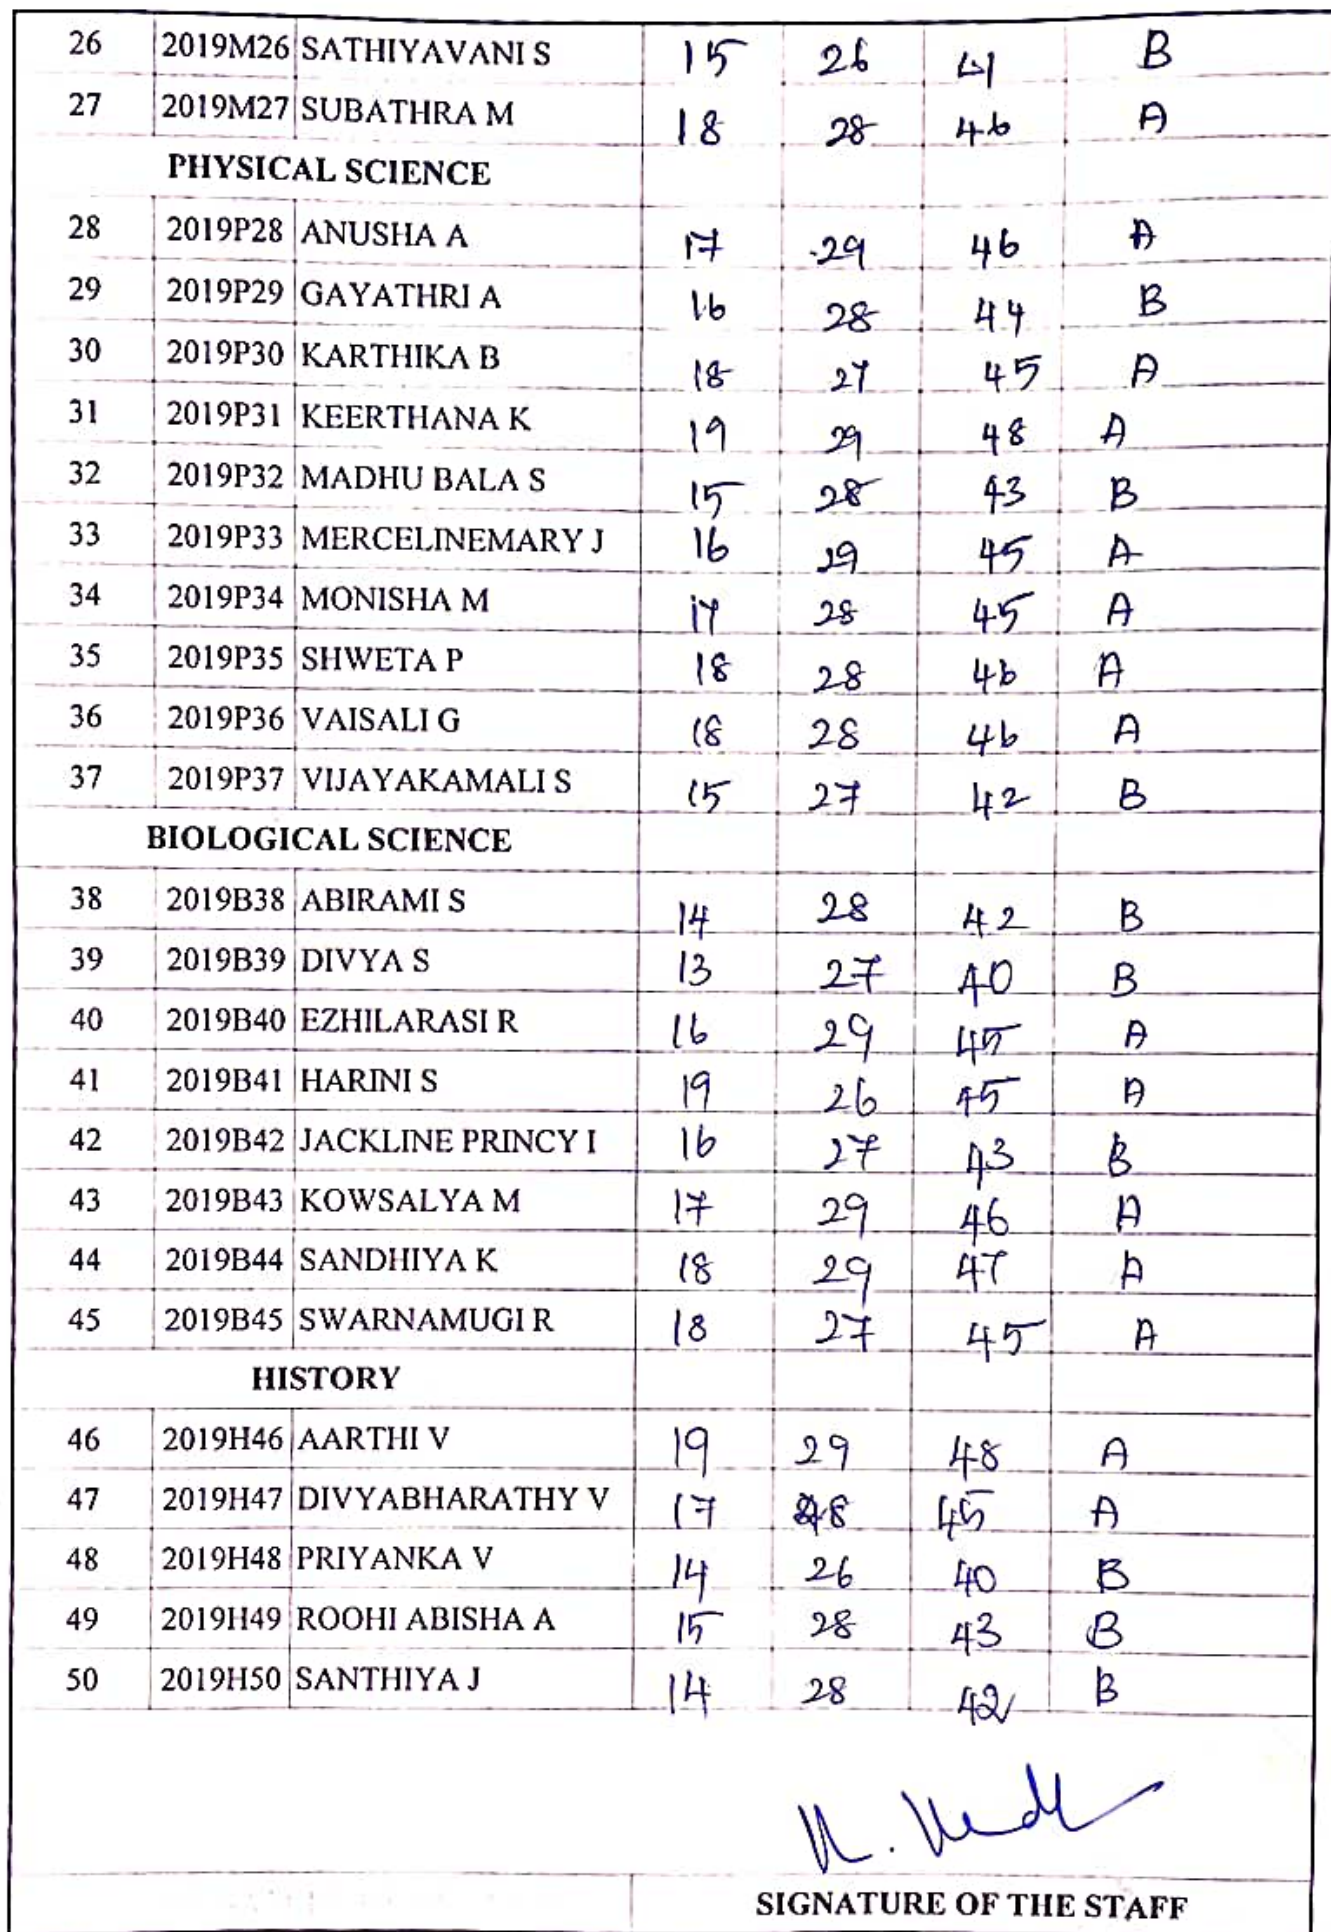 26 2019M26 SATHIYAVANI S 15 26 41 B
27 2019M27 SUBATHRA M 18 28 46 A
PHYSICAL SCIENCE
28 2019P28 ANUSHA A 17 29 46 A
29 2019P29 GAYATHRI A 16 28 44 B
30 2019P30 KARTHIKA B 18 27 45 A
31 2019P31 KEERTHANA K 19 29 48 A
32 2019P32 MADHU BALA S 15 28 43 B
33 2019P33 MERCELINEMARY J 16 29 45 A
34 2019P34 MONISHA M 17 28 45 A
35 2019P35 SHWETA P 18 28 46 A
36 2019P36 VAISALI G 18 28 46 A
37 2019P37 VIJAYAKAMALI S 15 27 42 B
BIOLOGICAL SCIENCE
38 2019B38 ABIRAMI S 14 28 42 B
39 2019B39 DIVYA S 13 27 40 B
40 2019B40 EZHILARASI R 16 29 45 A
41 2019B41 HARINI S 19 26 45 A
42 2019B42 JACKLINE PRINCY I 16 27 43 B
43 2019B43 KOWSALYA M 17 29 46 A
44 2019B44 SANDHIYA K 18 29 47 A
45 2019B45 SWARNAMUGI R 18 27 45 A
HISTORY
46 2019H46 AARTHI V 19 29 48 A
47 2019H47 DIVYABHARATHY V 17 28 45 A
48 2019H48 PRIYANKA V 14 26 40 B
49 2019H49 ROOHI ABISHA A 15 28 43 B
50 2019H50 SANTHIYA J 14 28 42 B
SIGNATURE OF THE STAFF